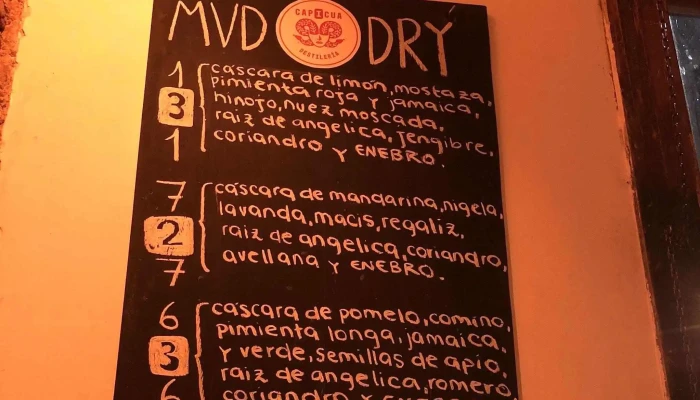 MVD DRY
CAPICUA
DESTILERÍA
131
cáscara de limón, mostaza,
pimienta roja y jamaica,
hinojo, nuez moscada,
raiz de angelica, jengibre,
coriandro y ENEBRO.
727
cáscara de mandarina, nigela,
lavanda, macis, regaliz,
raiz de angelica, coriandro,
avellana y ENEBRO.
636
cáscara de pomelo, comino,
pimienta longa, jamaica
y verde, semillas de apio,
raiz de angelica, romero
coriandro y